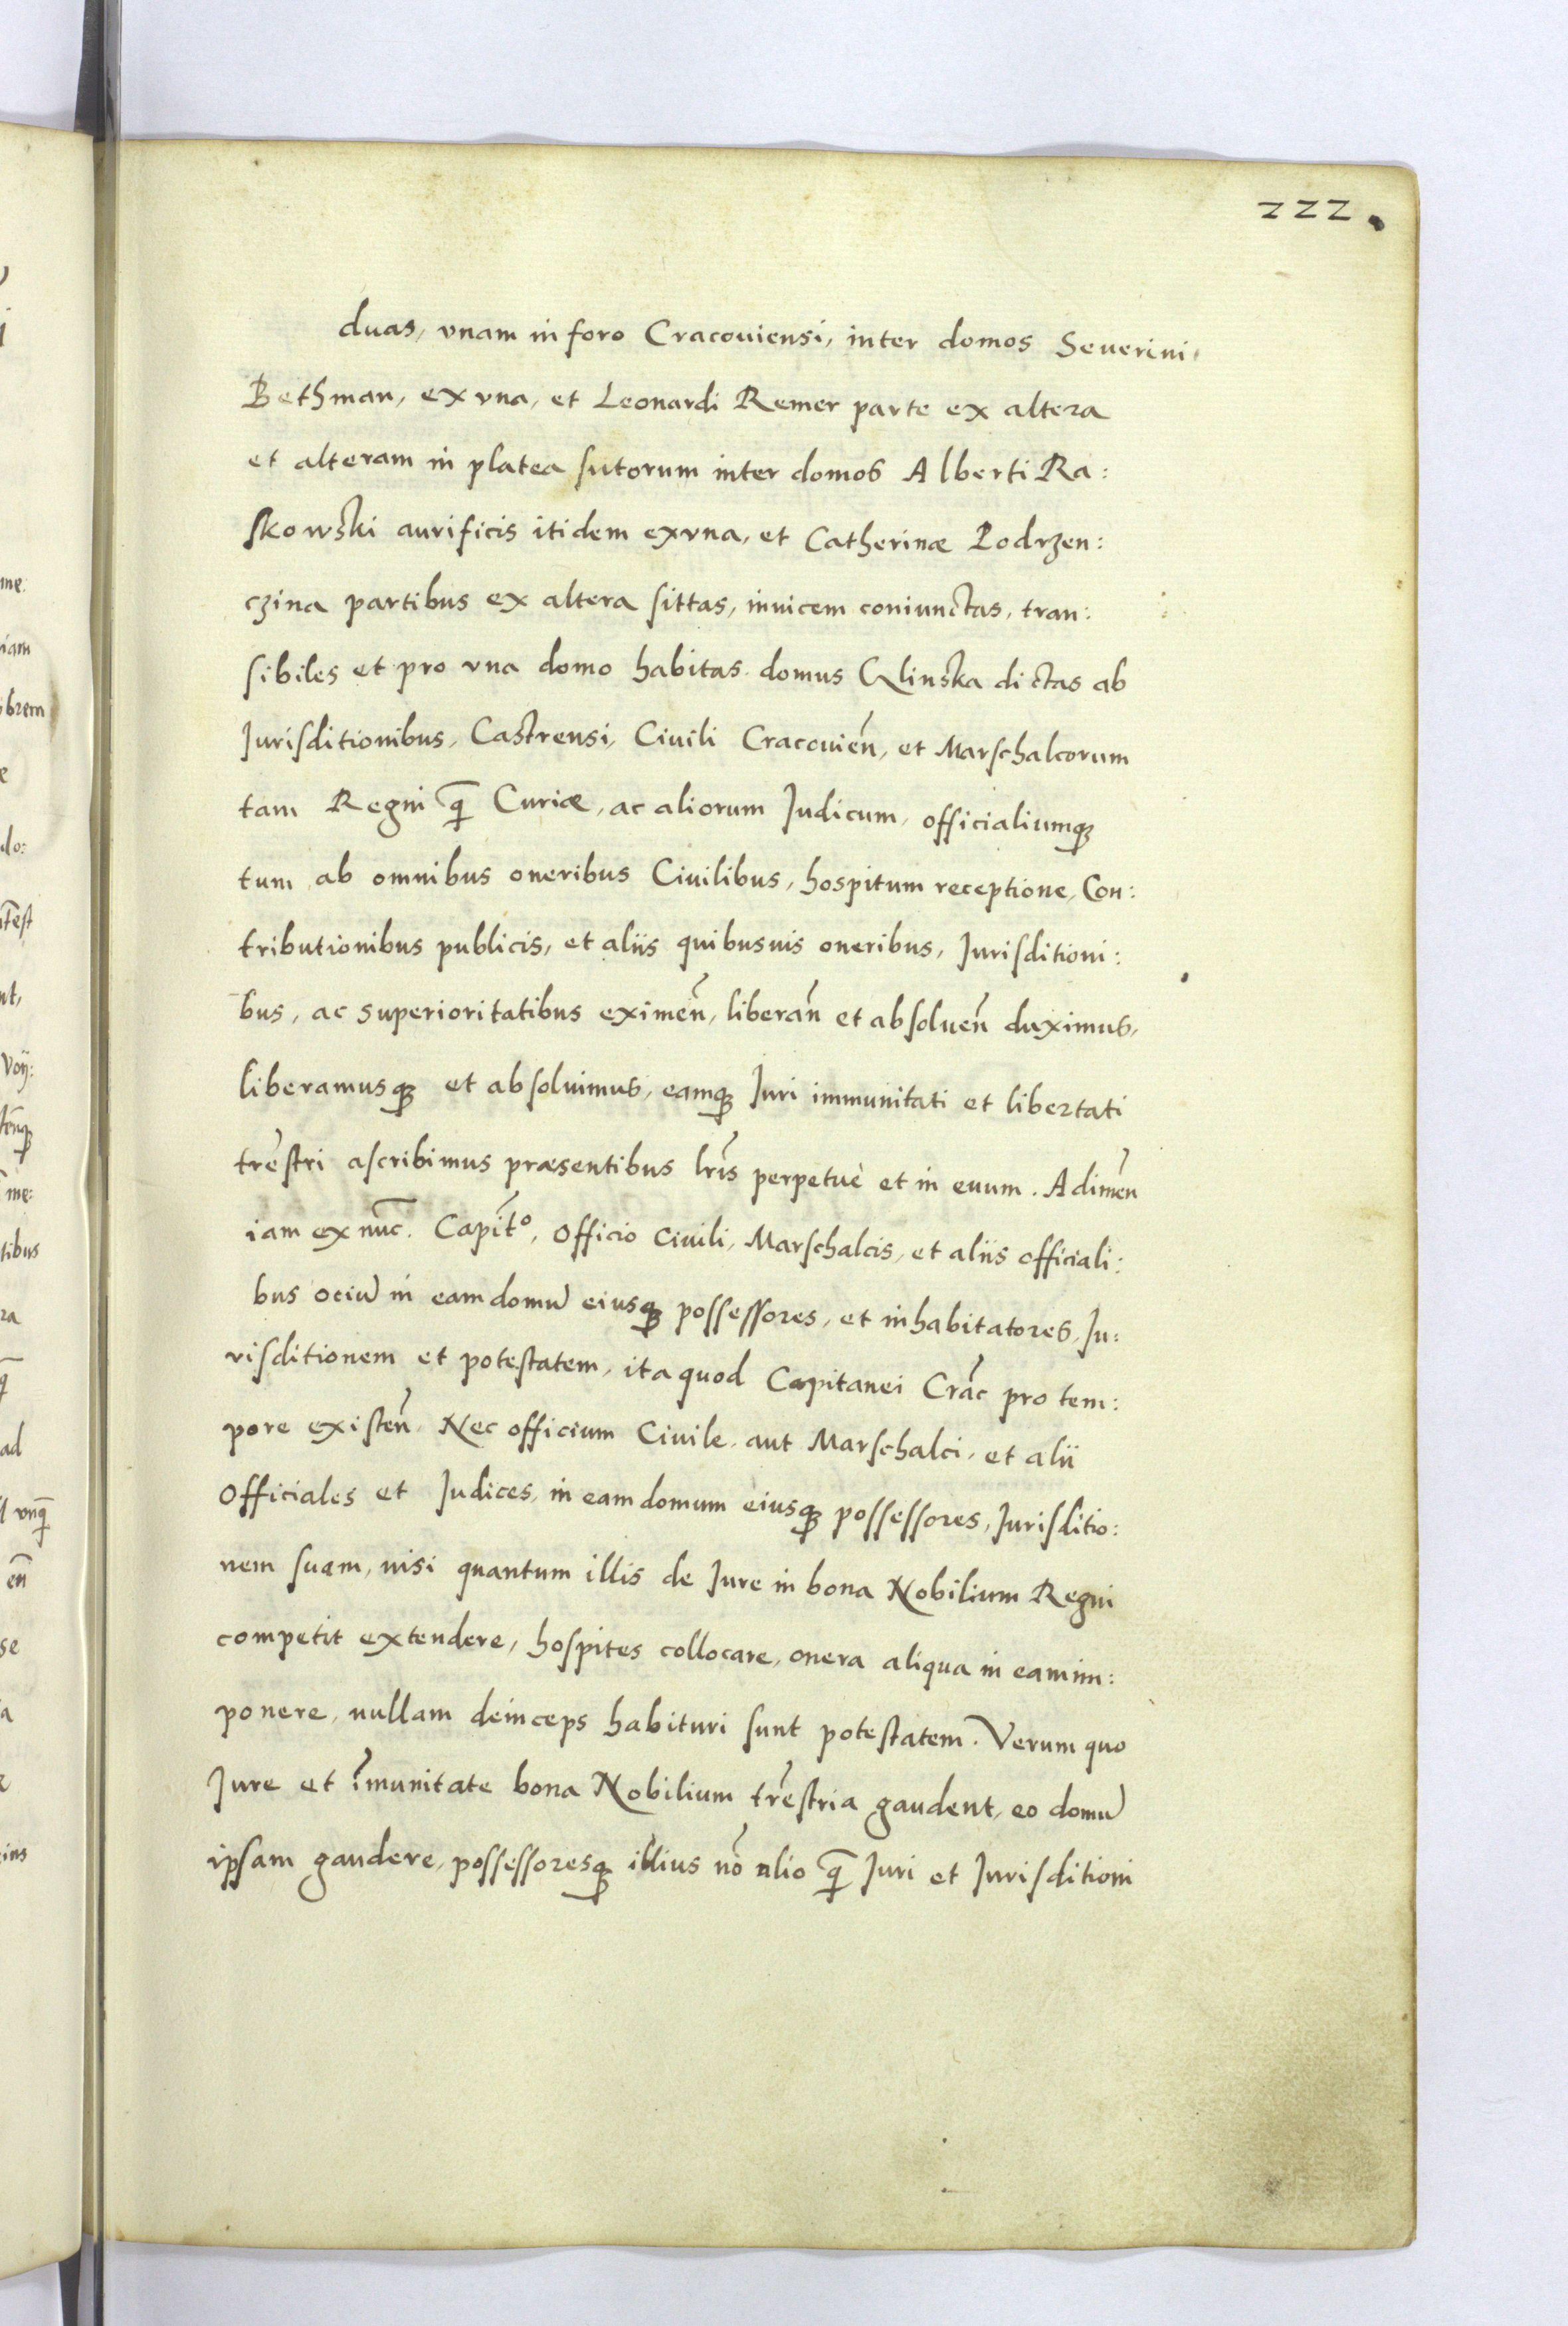 222.
duas, vnam in foro Cracouiensi, inter domos Seuerini,
Bethman, ex vna, et Leonardi Remer parte ex altera
et alteram in platea sutorum inter domos Alberti Ra:
skowski aurificis itidem ex vna, et Catherinæ Podrzen:
czina partibus ex altera sittas, inuicem coniunctas, tran:
sibiles et pro vna domo habitas. domus Glinska dictas ab
Jurisditionibus, Castrensi, Ciuili Cracouien̄, et Marschalcorum
tam Regni q̄ Curiæ, ac aliorum Judicum, officialiumq;
tum ab omnibus oneribus Ciuilibus, hospitum receptione, Con:
tributionibus publicis, et aliis quibusuis oneribus, Jurisditioni:
bus, ac superioritatibus eximen̄, liberan̄ et absoluen̄ duximus,
liberamusq; et absoluimus, eamq; Juri immunitati et libertati
tr̄estri ascribimus præsentibus lr̄is perpetuè et in euum. Adimen̄
iam ex nūc. Capit̄o, Officio Ciuili, Marschalcis, et aliis officiali:
bus ociū in eam domū eiusq; possessores, et inhabitatores, Ju:
risditionem et potestatem, ita quod Capitanei Crac̄ pro tem:
pore existen̄. Nec officium Ciuile, aut Marschalci, et alii
Officiales et Judices, in eam domum eiusq; possessores, Jurisditio:
nem suam, nisi quantum illis de Jure in bona Nobilium Regni
competit extendere, hospites collocare, onera aliqua in eam im:
ponere, nullam deinceps habituri sunt potestatem. Verum quo
Jure et im̄unitate bona Nobilium tr̄estria gaudent, eo domū
ipsam gaudere, possessoresq; illius nō alio q̄ Juri et Jurisditioni